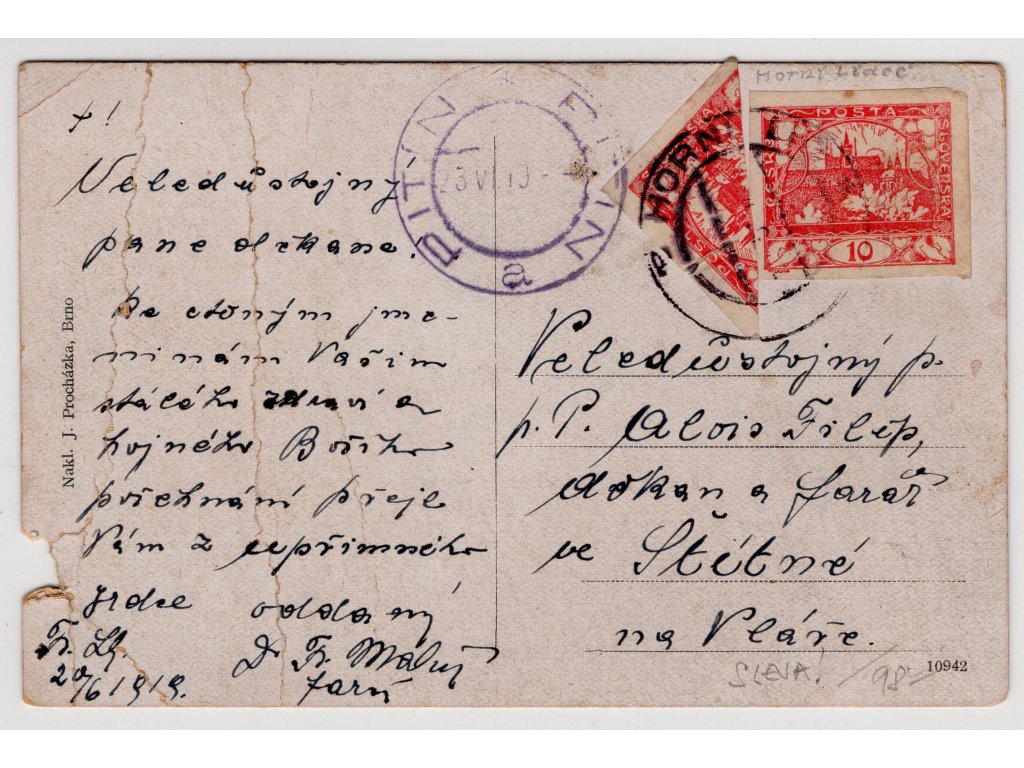 †!
Veledůstojný
pane děkane!
Ke ctěným jme-
ninám Vašim
stálého zdraví a
hojného Božího
požehnání přeje
Vám z upřímného
srdce oddaný
Dr Fr. Malý
farář
20/6 1919.
Nakl. J. Procházka, Brno
BITÍN a
23.VI.19
HORNÍ
Horní Lideč
POŠTA
ČESKO
SLOVENSKÁ
10
Veledůstojný p.
p. P. Alois Filip,
děkan a farář
ve Štítné
na Vláře.
SLEVA!
98
10942